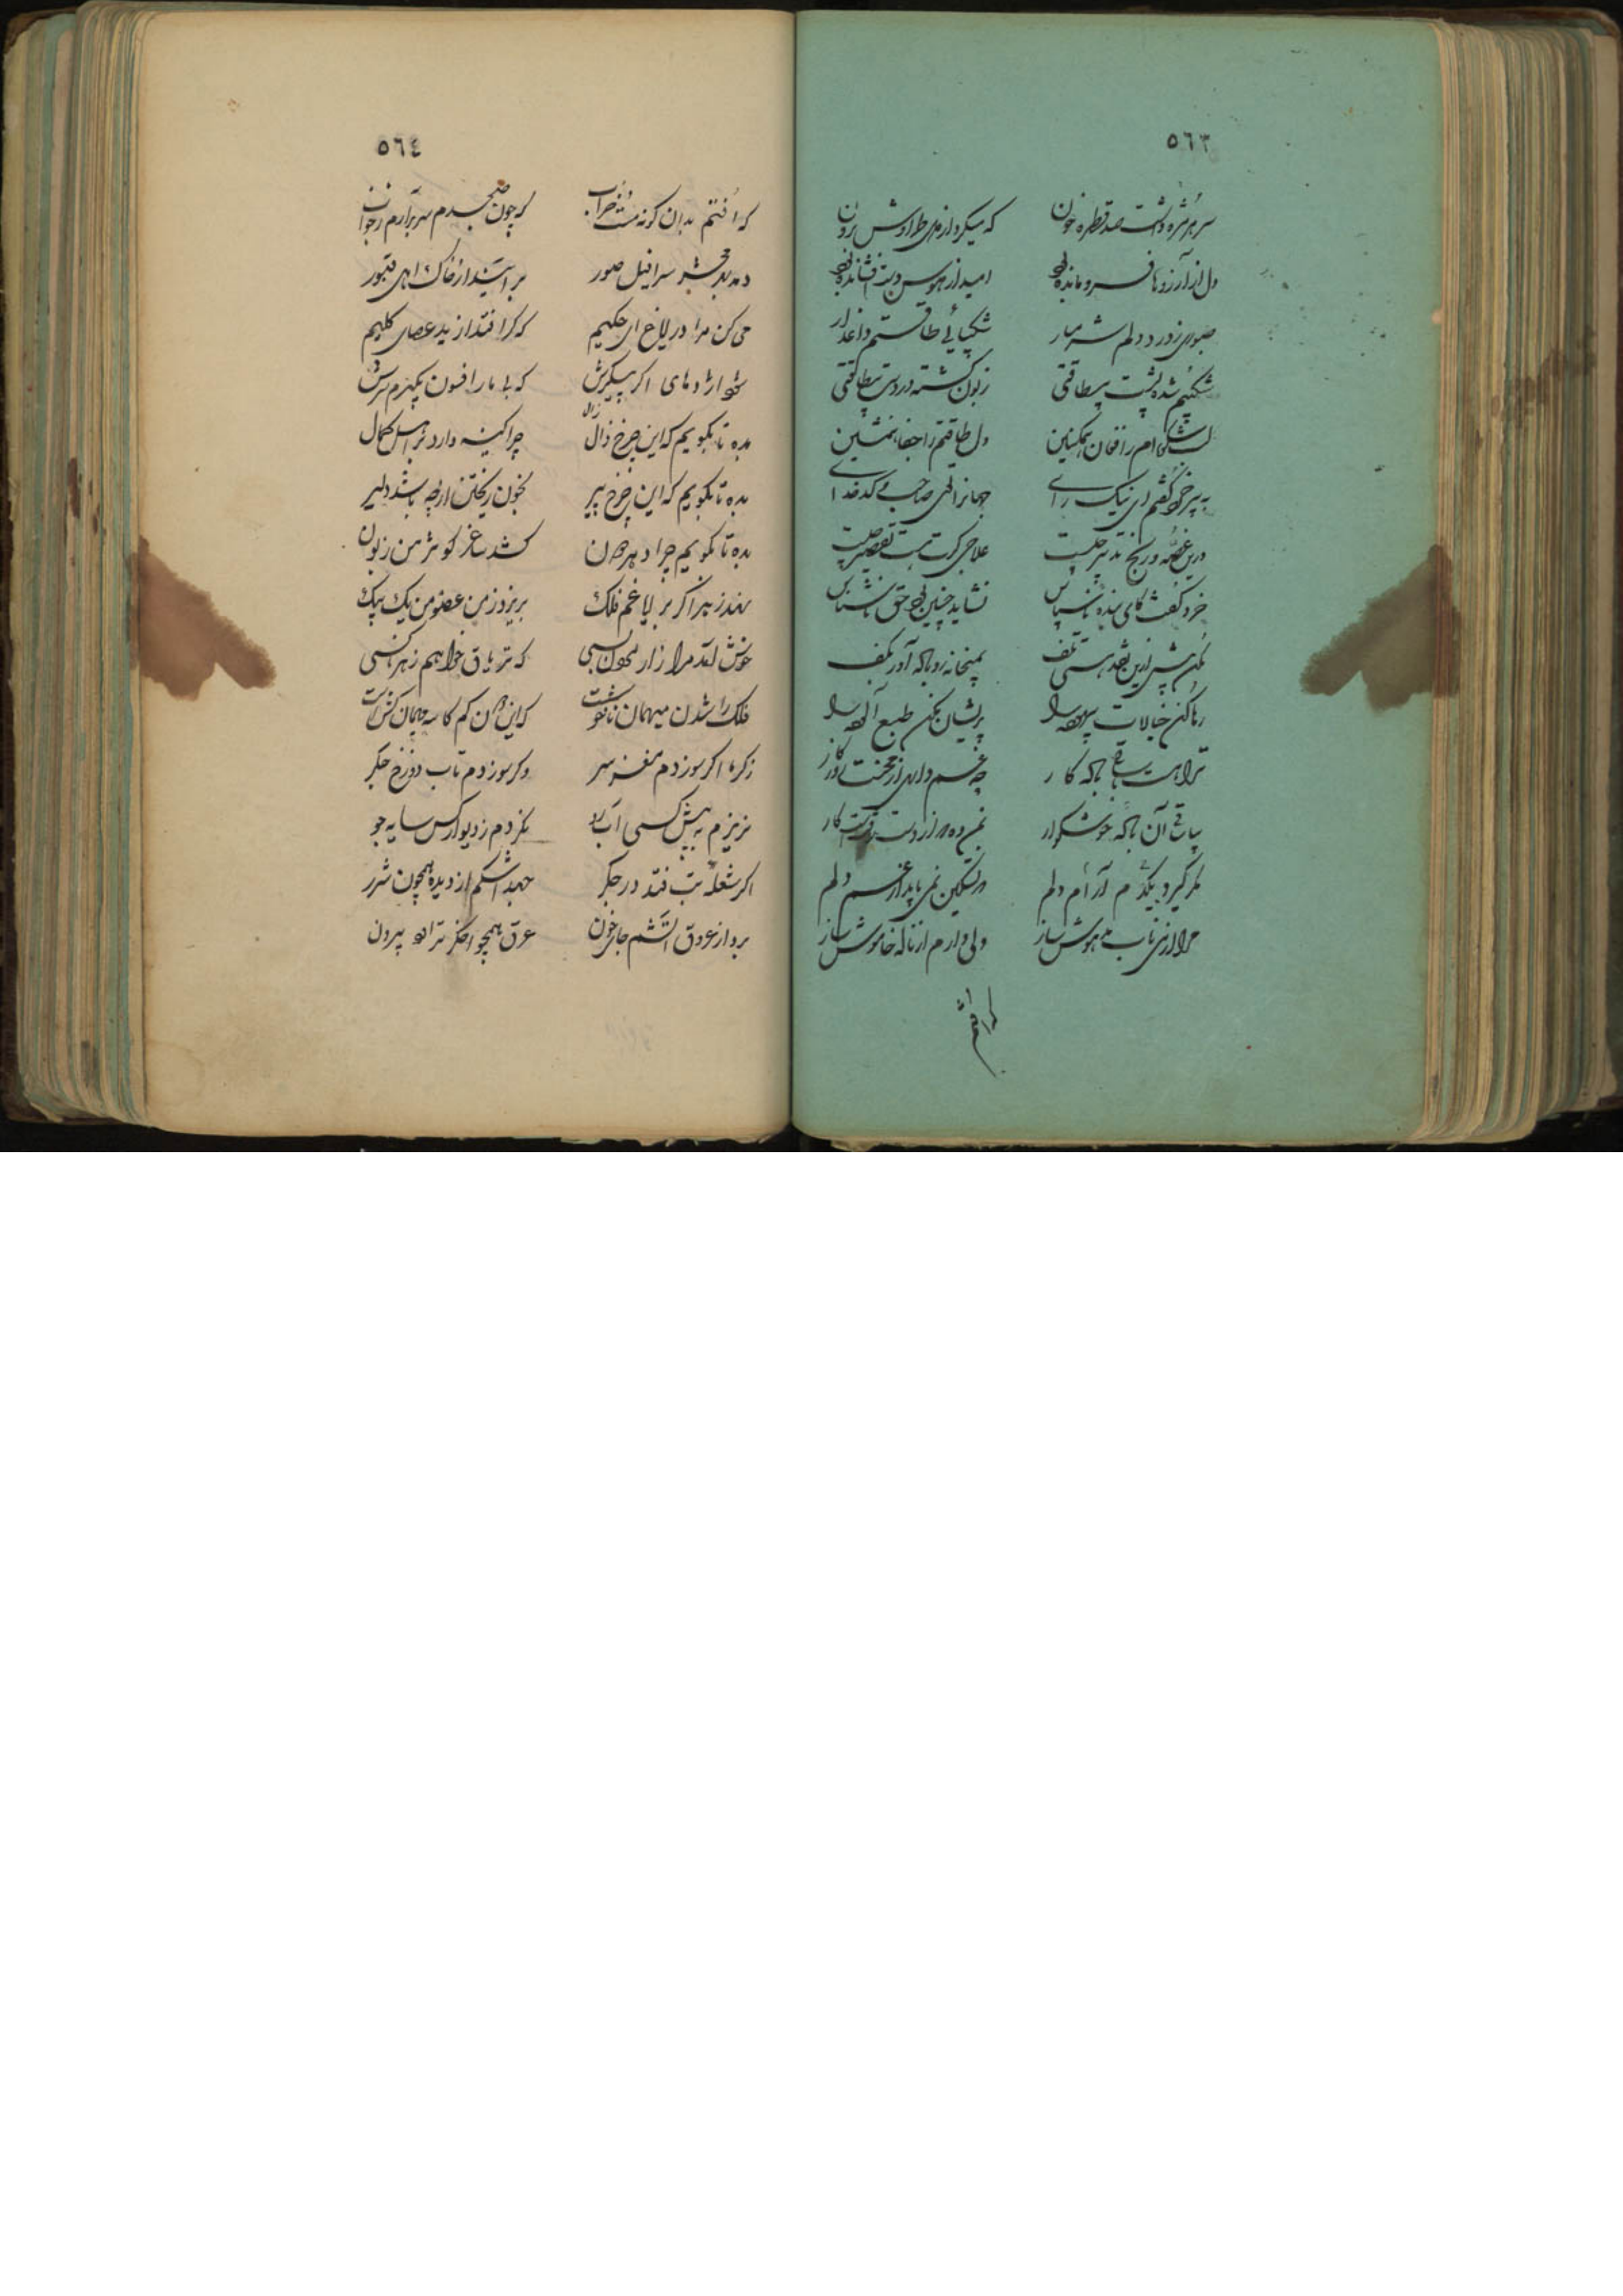 ٥٦٣
سر هر مژه داشت صد قطره خون که میکرد از
دل از آرزوها فرو مانده بود امید از هوس دست افشانده بود
صبوری ز درد دلم شرمسار شکیبائی طاقتم داغدار
شکیبم شده پشت بیطاقتی زبون گشته در دست بیطاقتی
لب شکوه‌ام را فغان همنشین دل طاقتم را جفا همنشین
به پیر خرد گفتم ای نیک رای جهانرا توئی صاحب و کدخدای
درین غصه و رنج تدبیر چیست علاجی کرت هست تقصیر چیست
خرد گفت کای بنده ناسپاس نشاید چنین بود حق ناشناس
مکن پیش ازین نقد هستی تلف بمیخانه رو باده آور بکف
رها کن خیالات بیهوده را پریشان مکن طبع آلوده را
ترا هست با ساقی باده کار چه غم داری از محنت روزگار
بیا ساقی آن باده خوشگوار بمن ده که از دست رفتست کار
مگر گیرد یکدم آرام دلم که تسکین نمی یابد از غم دلم
مرا از می ناب بیهوش ساز ولی دارم از ناله خاموش ساز
کرافتم
٥٦٤
که افتم بدان گونه مست خراب که چون صبحدم سر برآرم ز خواب
دمد بمحشر سرافیل صور بر آستند از خاک اهل قبور
می کن مرا در ایاغ ای حکیم که گر افتد از ید عصای کلیم
شود اژدهای اگر پیکرش که با مار افسون بگیرم سرش
بده تا بگویم که این چرخ زال چرا کینه دارد بر اهل کمال
بده تا بگویم که این چرخ پیر بخون ریختن از چه باشد دلیر
بده تا بگویم چرا دهر دون کشد ساغر کو ز من زبون
نهد زبر اگر بر لبا غم فلک بریزد ز من عضو من یک بیک
خوش افتد مرا زار که تریاق خواهم ز هر ناکسی
فلک را شدن میهمان ناخوشست که این دون کم کاسه مهمان کش است
ز گرما اگر سوزدم مغز سر وگر سوزدم تاب دوزخ جگر
نریزم به پیش کسی آب رو نگردم ز دیوار کس سایه جو
اگر شعله تب فتد در جگر جهد اشکم از دیده همچون شرر
برد از عروق آتشم جای خون عرق همچو اخگر تراود بیرون